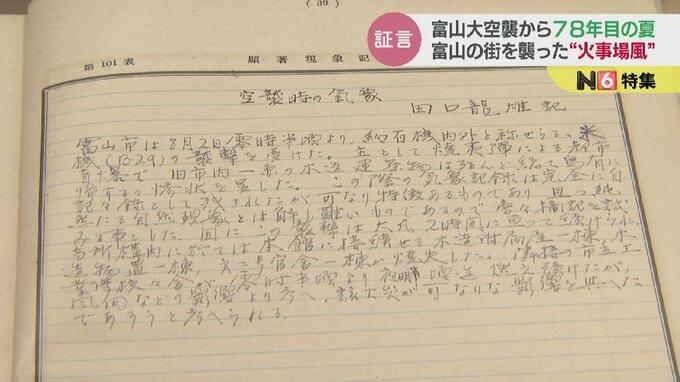 ( 39 )
証言
富山大空襲から78年目の夏
富山の街を襲った“火事場風”
N6 特集
第101表
顕著現象記
空襲時の気象
田口龍雄記
富山市は8月2日零時半頃より、約百機内外と称せらるゝ米
機(B-29)の襲撃を受けた。主として焼夷弾による都市
爆で 旧市内一糸の木造建築物は殆んど総て烏有に
するの惨状を呈した。この際の気象記録は完全に自
記々録として残されたが可なり特徴あるものであり 且つ純
たる自然現象とは解し難いものであるので 記を試
みる事とした。因にこの襲撃は大凡2時間に亘って続けられ
当所構内に於ては本館に接続せる木造附属屋一棟、木
造物置一棟、第三号官舎一棟が焼失した。隣接の市立工
零時半頃より 頃迄燃え続けたが、
風向などの影響より考へ、該火災が可なりな影響を与へた
であらうと考へられる。